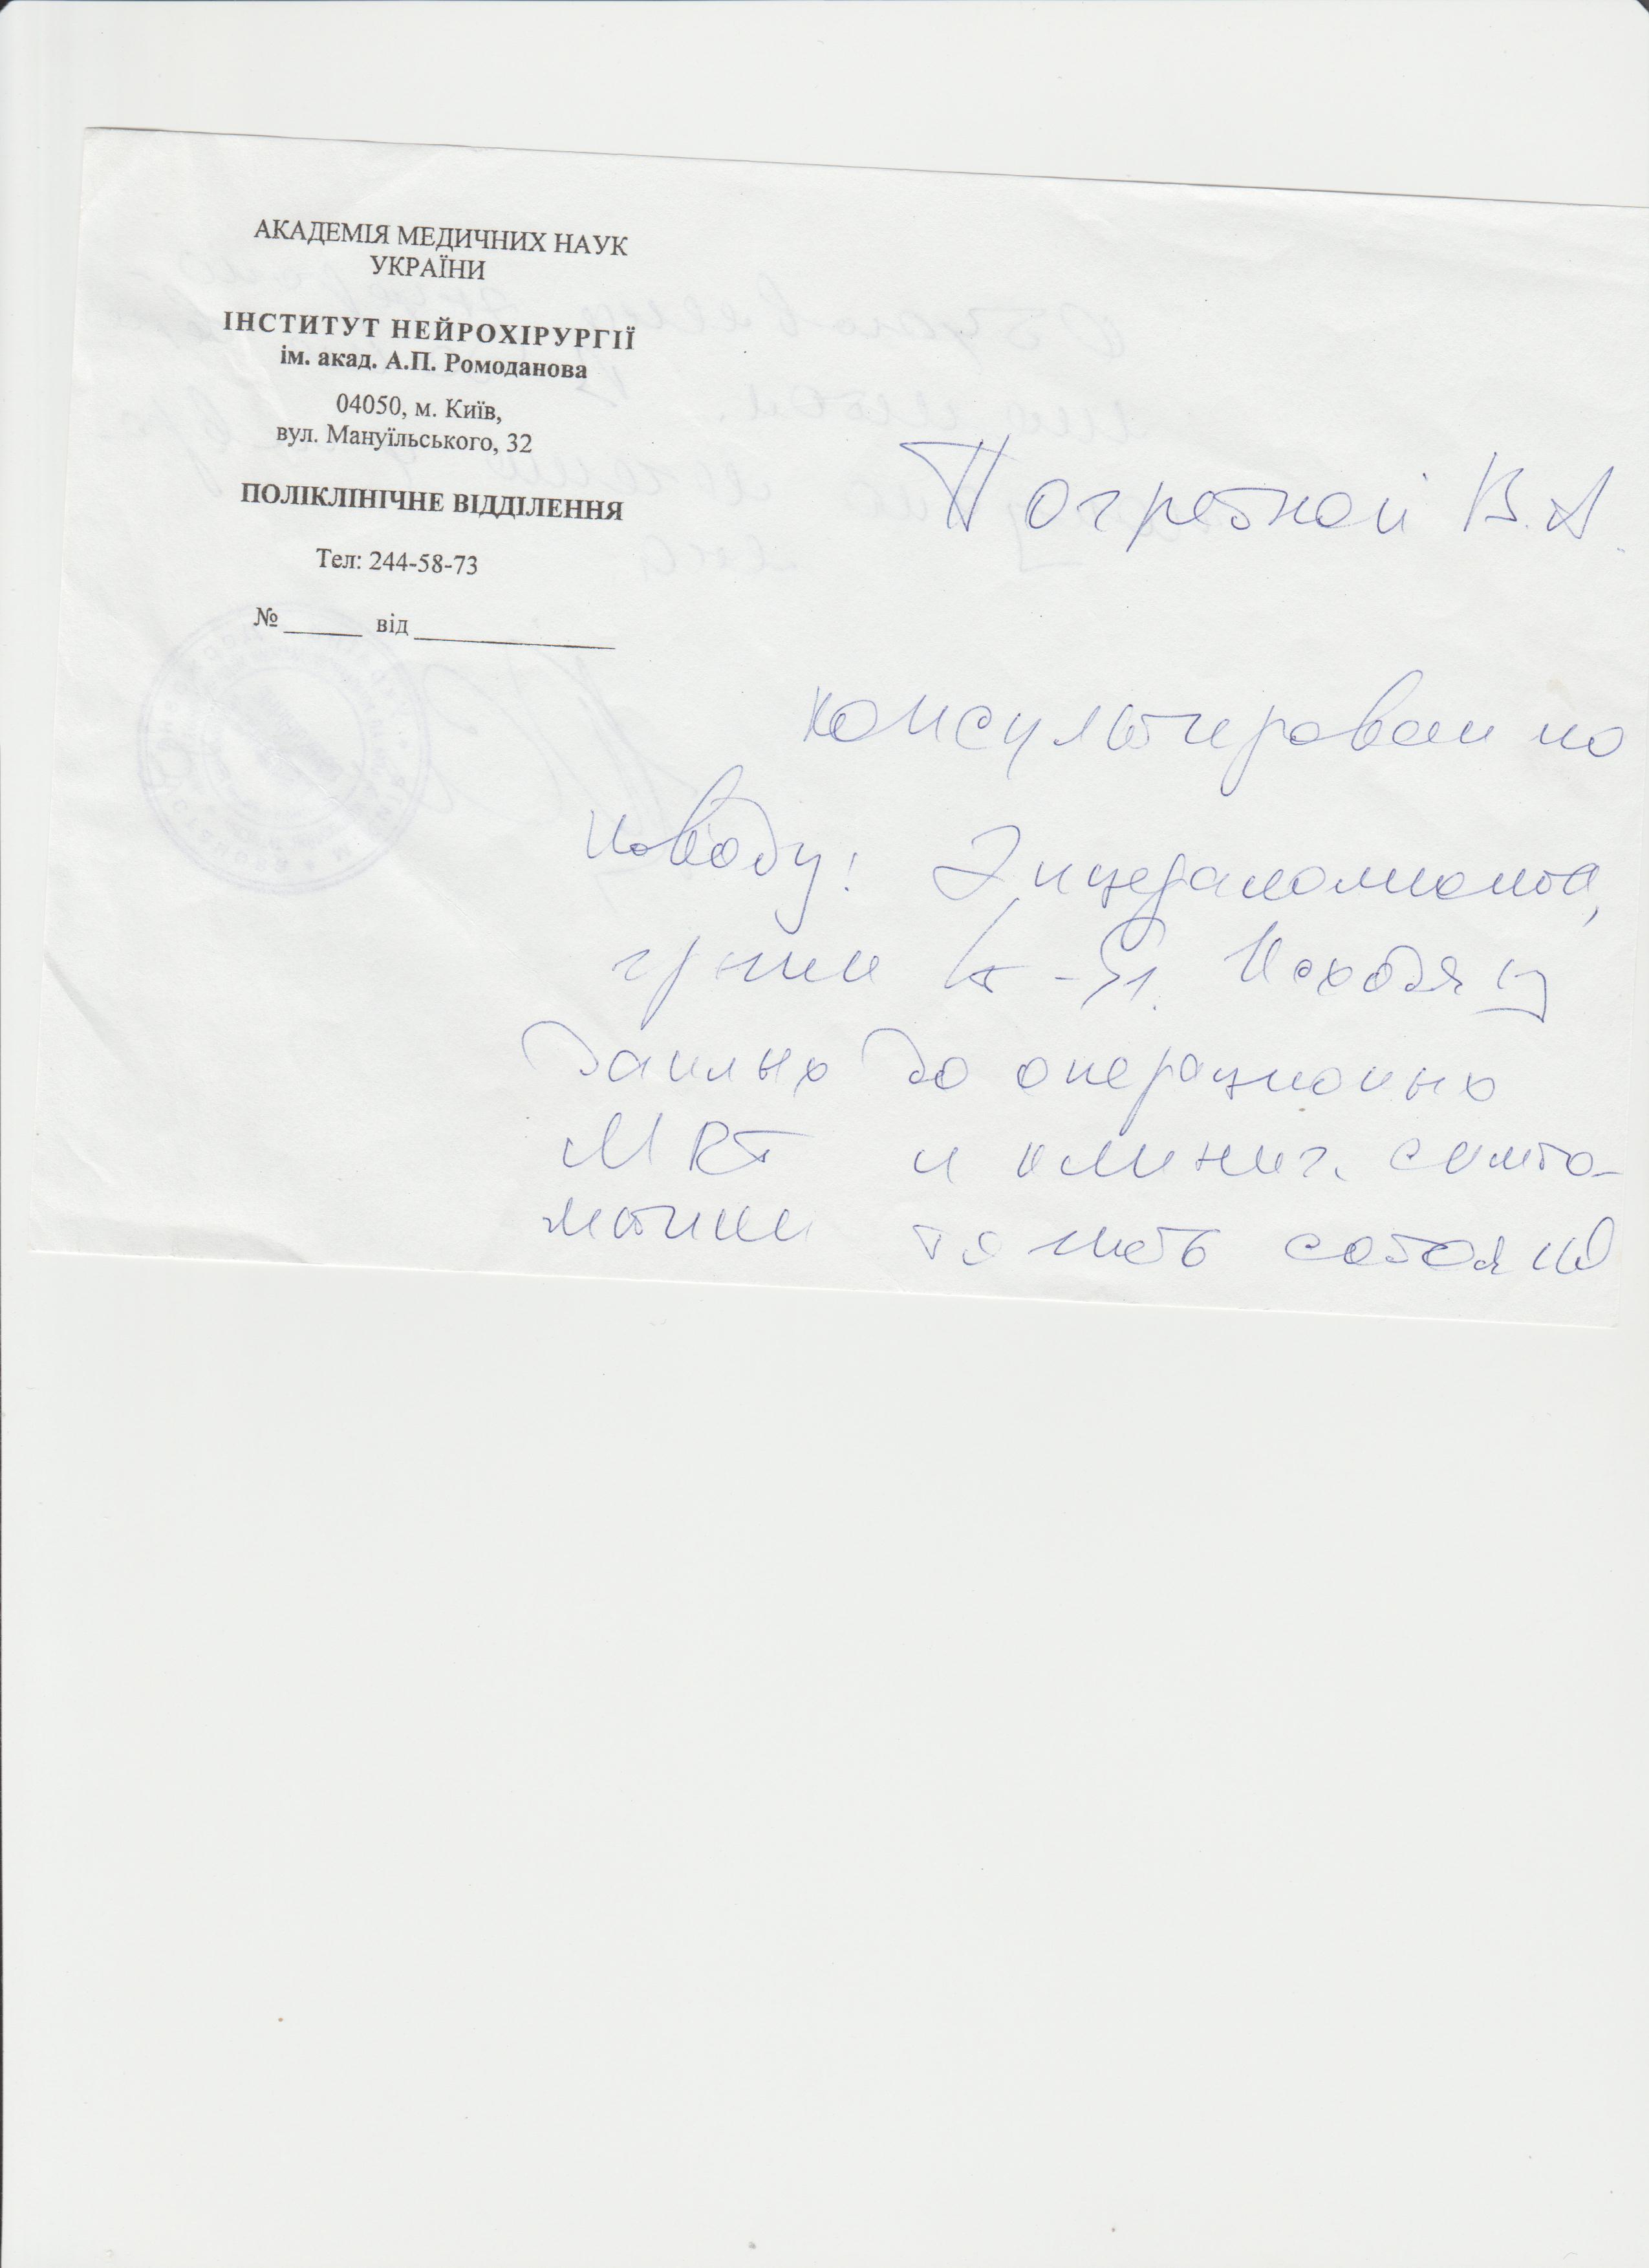 АКАДЕМІЯ МЕДИЧНИХ НАУК
УКРАЇНИ
ІНСТИТУТ НЕЙРОХІРУРГІЇ
ім. акад. А.П. Ромоданова
04050, м. Київ,
вул. Мануїльського, 32
ПОЛІКЛІНІЧНЕ ВІДДІЛЕННЯ
Тел: 244-58-73
№ від
Погребной В.А.
консультирован по
поводу:
Исходя из
данных до операционных
МRT и клинич. симпто-
матики тяжесть состояния